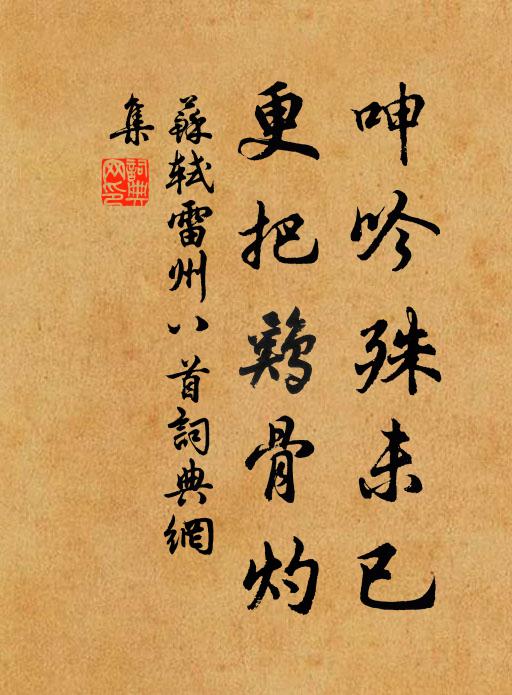 呻吟殊未已
更把鷄骨灼
蘇軾雷州八首詞典網
集
詞典网印